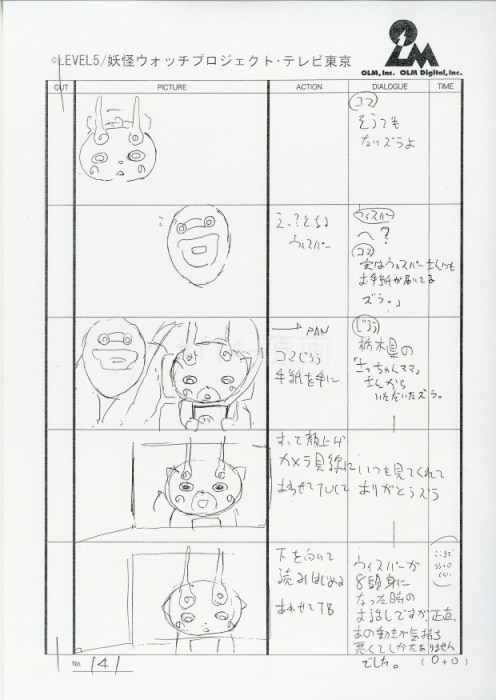 ©LEVEL5/妖怪ウォッチプロジェクト・テレビ東京
OLM
OLM, Inc. OLM Digital, Inc.
CUT
PICTURE
ACTION
DIALOGUE
TIME
コマ
そうでも
ないズラよ
え、?となる
ウィスパー
ウィスパー
へ?
コマ
実はウィスパーさんにも
お手紙が届いてる
ズラ。」
→PAN
コマじろう
手紙を手に
じろう
栃木県の
「さっちゃんママ」
さんから
いただいたズラ。
すって顔上が
カメラ目線に
まわせてTUして
いつも見てくれて
ありがとうズラ
下を向いて
読みはじめる
まわせてTB
ウィスパーが
8頭身に
なった時の
お話しですが、正直、
あの動きが気持ち
悪くてしかたありません
でした。
ここまで
(0+0)
No. 141